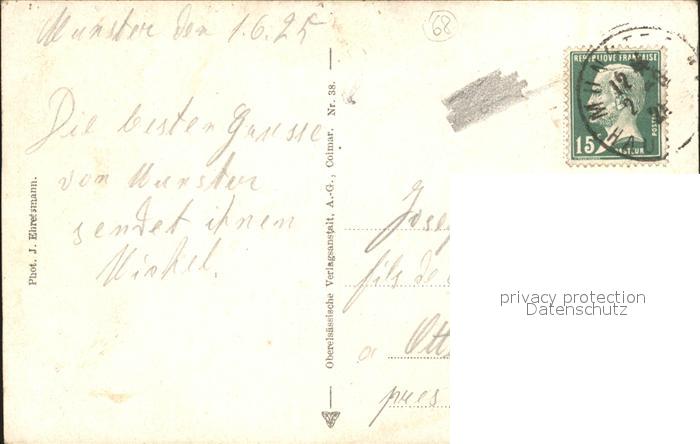 Munster den 1.6.25
68
Die besten Grüsse
von Munster
sendet ihnen
Michel.
Phot. J. Ehretsmann.
Oberelsässische Verlagsanstalt, A.-G., Colmar, Nr. 38.
REPUBLIQUE FRANÇAISE
POSTES
15c PASTEUR
Jose
fils de
a Ott
pres
privacy protection
Datenschutz